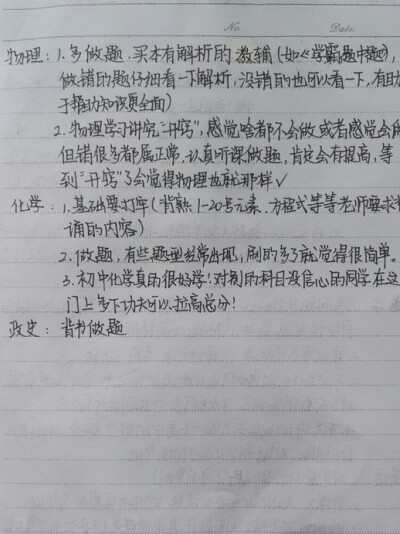 No. Date.
物理：1.多做题，买本有解析的教辅（如《学霸题中题》），
做错的题仔细看一下解析，没错的也可以看一下，有助
于帮助知识更全面）
2.物理学习讲究“开窍”，感觉啥都不会做或者感觉会的
但错很多都属正常，认真听课做题，肯定会有提高，等
到“开窍”了会觉得物理也就那样✓
化学：1.基础要打牢（背熟1-20号元素、方程式等等老师要求背
诵的内容）
2.做题，有些题型经常出现，刷的多了就觉得很简单。
3.初中化学真的很好学！对别的科目没信心的同学在这
门上多下功夫可以拉高总分！
政史：背书做题